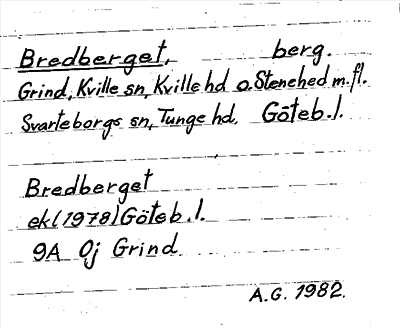 Bredberget, berg.
Grind, Kville sn, Kville hd o. Stenehed m.fl.
Svarteborgs sn, Tunge hd. Göteb. l.
Bredberget
ekl (1978) Göteb. l.
9A 0j Grind
A.G. 1982.